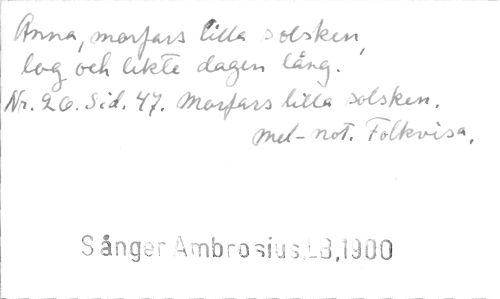 Anna, morfars lilla solsken,
log och lekte dagen lång.
Nr. 26. Sid. 47. Morfars lilla solsken.
Mel-not. Folkvisa.
Sånger Ambrosius, LB, 1900